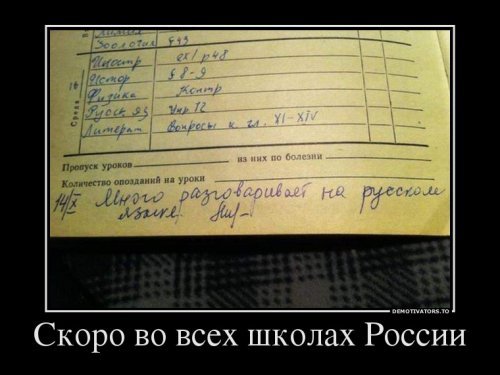 Химия
Зоология § 43
Иностр ex 1 p 48
Истор § 8-9
Физика Контр
Русск яз Упр 12
Литерат Вопросы к гл. XI-XIV
Среда 16
Пропуск уроков из них по болезни
Количество опозданий на уроки
14/X Много разговаривает на русском
языке.
DEMOTIVATORS.TO
Скоро во всех школах России